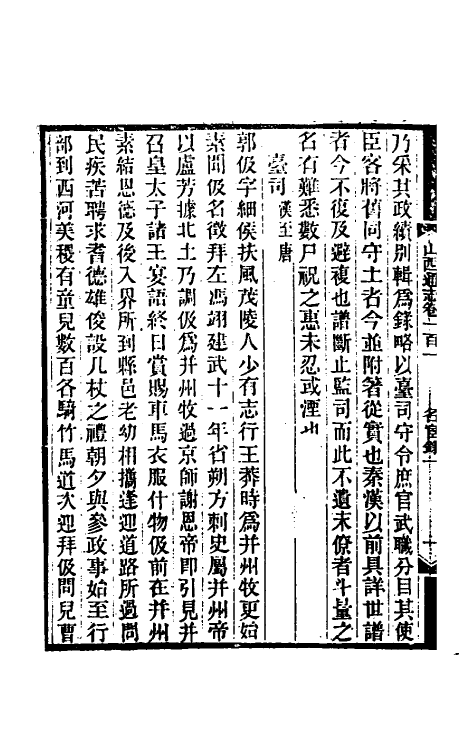 山西通志卷一百一　名宦錄一
乃采其政績別輯爲錄略以臺司守令庶官武職分目其使
臣客將舊同守土者今並附著從實也秦漢以前具詳世譜
者今不復及避複也譜斷止監司而此不遺末僚者斗量之
名有難悉數尸祝之惠未忍或湮也
臺司漢至唐
郭伋字細侯扶風茂陵人少有志行王莽時爲并州牧更始
素聞伋名徵拜左馮翊建武十一年省朔方刺史屬并州帝
以盧芳據北土乃調伋爲并州牧過京師謝恩帝即引見并
召皇太子諸王宴語終日賞賜車馬衣服什物伋前在并州
素結恩德及後入界所到縣邑老幼相攜逢迎道路所過問
民疾苦聘求耆德雄俊設几杖之禮朝夕與參政事始至行
部到西河美稷有童兒數百各騎竹馬道次迎拜伋問兒曹